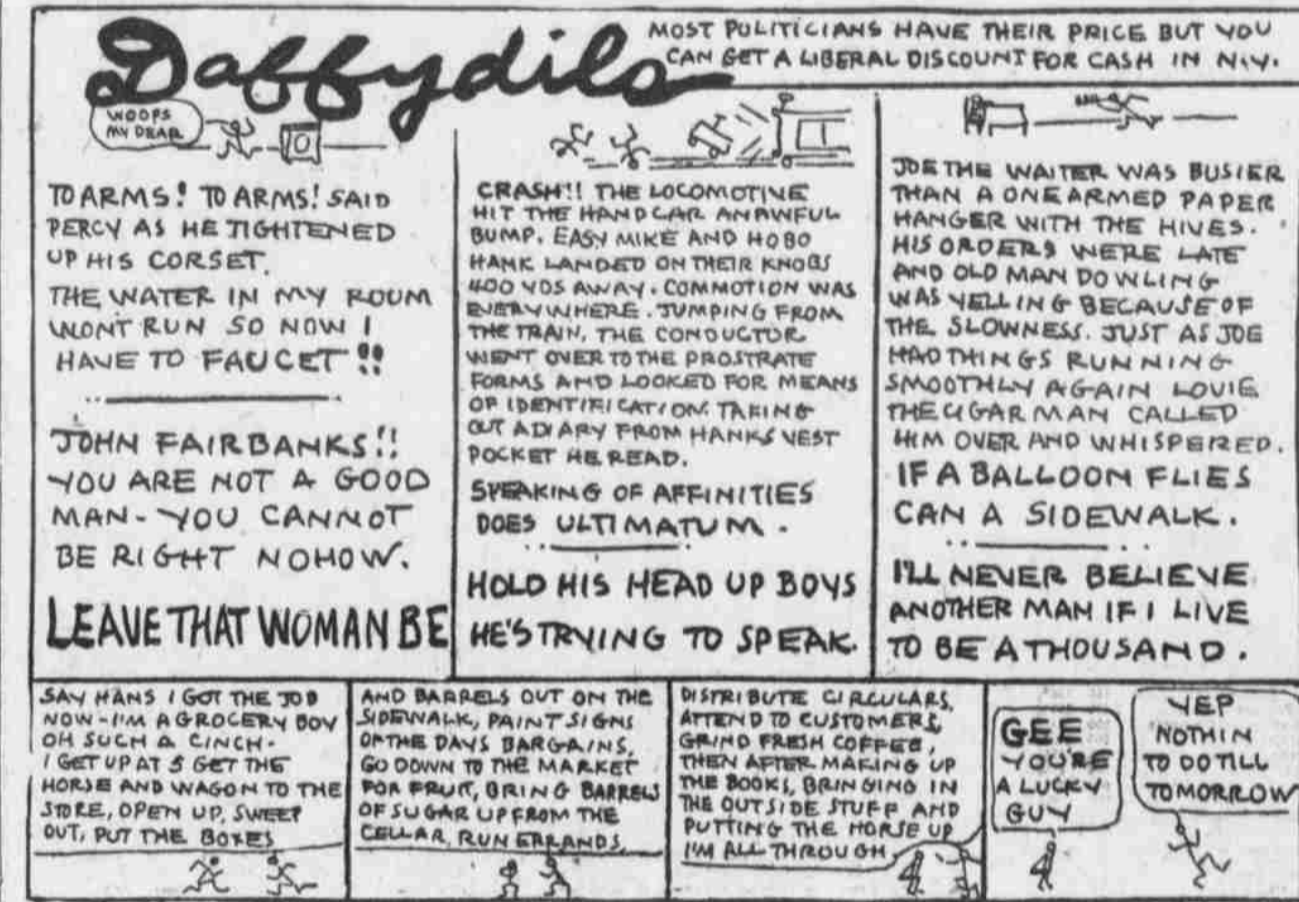 Daffydils
MOST POLITICIANS HAVE THEIR PRICE BUT YOU
CAN GET A LIBERAL DISCOUNT FOR CASH IN N.Y.
WOOPS
MY DEAR
TO ARMS! TO ARMS! SAID
PERCY AS HE TIGHTENED
UP HIS CORSET.
THE WATER IN MY ROOM
WONT RUN SO NOW I
HAVE TO FAUCET!!
JOHN FAIRBANKS!!
YOU ARE NOT A GOOD
MAN - YOU CANNOT
BE RIGHT NOHOW.
LEAVE THAT WOMAN BE
CRASH!! THE LOCOMOTIVE
HIT THE HANDCAR AN AWFUL
BUMP. EASY MIKE AND HOBO
HANK LANDED ON THEIR KNOBS
400 YDS AWAY. COMMOTION WAS
EVERYWHERE. JUMPING FROM
THE TRAIN, THE CONDUCTOR
WENT OVER TO THE PROSTRATE
FORMS AND LOOKED FOR MEANS
OF IDENTIFICATION. TAKING
OUT A DIARY FROM HANKS VEST
POCKET HE READ.
SPEAKING OF AFFINITIES
DOES ULTIMATUM.
HOLD HIS HEAD UP BOYS
HE'S TRYING TO SPEAK.
JOE THE WAITER WAS BUSIER
THAN A ONE ARMED PAPER
HANGER WITH THE HIVES.
HIS ORDERS WERE LATE
AND OLD MAN DOWLING
WAS YELLING BECAUSE OF
THE SLOWNESS. JUST AS JOE
HAD THINGS RUNNING
SMOOTHLY AGAIN LOUIE
THE CIGAR MAN CALLED
HIM OVER AND WHISPERED.
IF A BALLOON FLIES
CAN A SIDEWALK.
I'LL NEVER BELIEVE
ANOTHER MAN IF I LIVE
TO BE A THOUSAND.
SAY HANS I GOT THE JOB
NOW - I'M A GROCERY BOY
OH SUCH A CINCH -
I GET UP AT 5 GET THE
HORSE AND WAGON TO THE
STORE, OPEN UP, SWEEP
OUT, PUT THE BOXES
AND BARRELS OUT ON THE
SIDEWALK, PAINT SIGNS
OF THE DAYS BARGAINS,
GO DOWN TO THE MARKET
FOR FRUIT, BRING BARRELS
OF SUGAR UP FROM THE
CELLAR, RUN ERRANDS,
DISTRIBUTE CIRCULARS,
ATTEND TO CUSTOMERS,
GRIND FRESH COFFEE,
THEN AFTER MAKING UP
THE BOOKS, BRINGING IN
THE OUTSIDE STUFF AND
PUTTING THE HORSE UP
I'M ALL THROUGH
GEE
YOU'RE
A LUCKY
GUY
YEP
NOTHIN
TO DO TILL
TOMORROW